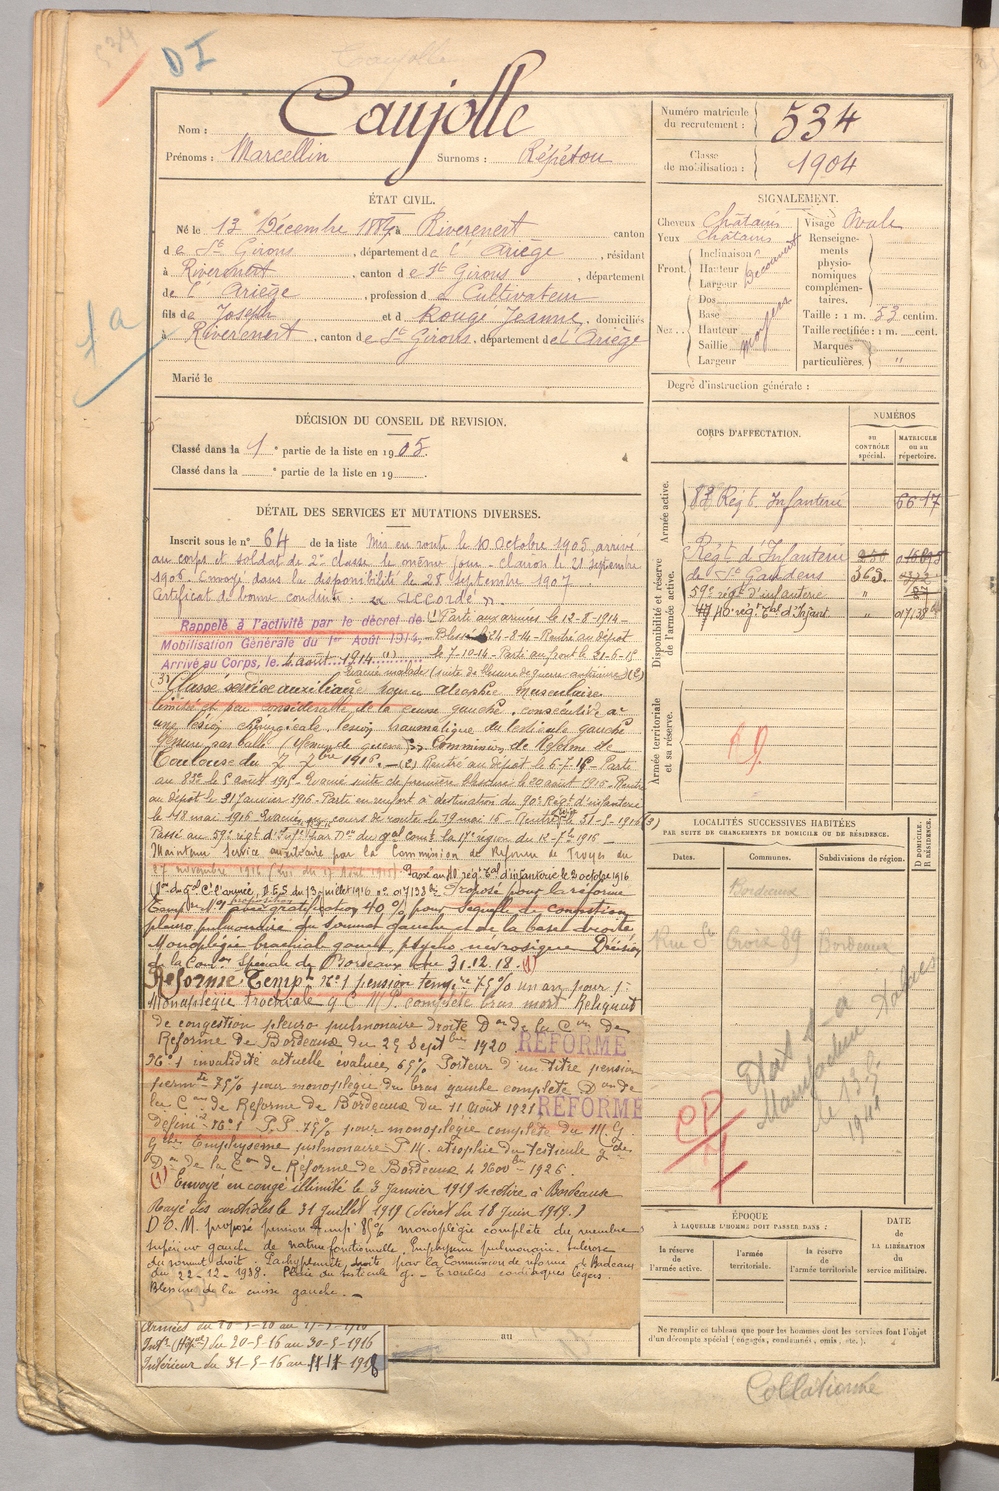 534
D I
Caujolle
Nom : Caujolle
Prénoms : Marcellin Surnoms : Répétou
Numéro matricule du recrutement : 534
Classe de mobilisation : 1904
ÉTAT CIVIL.
Né le 13 Décembre 1884, à Riverenert canton
de St Girons, département de l'Ariège, résidant
à Riverenert, canton de St Girons, département
de l'Ariège, profession de Cultivateur
fils de Joseph et de Rouge Jeanne, domiciliés
à Riverenert, canton de St Girons, département de l'Ariège
Marié le
1a
SIGNALEMENT.
Cheveux Châtains
Yeux Châtains
Front. Inclinaison
Hauteur Découvert
Largeur
Nez. Dos
Base moyen
Hauteur
Saillie
Largeur
Visage Ovale
Renseignements physionomiques complémentaires.
Taille : 1 m. 53 centim.
Taille rectifiée : 1 m. cent.
Marques particulières. "
Degré d'instruction générale :
DÉCISION DU CONSEIL DE REVISION.
Classé dans la 1e partie de la liste en 1905.
Classé dans la e partie de la liste en 19
DÉTAIL DES SERVICES ET MUTATIONS DIVERSES.
Inscrit sous le n° 64 de la liste Mis en route le 10 Octobre 1905, arrivé
au corps et soldat de 2e classe le même jour. Clairon le 21 septembre
1906. Envoyé dans la disponibilité le 28 septembre 1907
Certificat de bonne conduite "accordé".
Rappelé à l'activité par le décret de (1) Parti aux armées le 12-8-1914 -
Mobilisation Générale du 1er Août 1914, - Blessé 24-8-14 - Rentré au dépôt
Arrivé au Corps, le 4 août 1914 (1) le 7-10-14 - Parti au front le 21-6-15
Evacué malade (suite de blessure de guerre antérieure) (2)
(3) Classé service auxiliaire pour atrophie musculaire
limitée et peu considérable de la cuisse gauche, consécutive à
une lésion chirurgicale, lésion traumatique du testicule gauche
blessure par balle (blessure de guerre) Commission de Réforme de
Toulouse du 7 1916. - (2) Rentré au dépôt le 6-7-15 - Parti
au 83e le 5 août 1915 - Evacué suite de première blessure le 20 août 1915 - Rentré
au dépôt le 31 Janvier 1916 - Parti en renfort à destination du 90e Régt d'infanterie
le 18 mai 1916 - Evacué en cours de route le 19 mai 16 - Rentré le 31-5-1916 (3)
Passé au 59e régt d'Infie par Don du gal comt la 17e région du 1916
Maintenu Service auxiliaire par la Commission de Réforme de Troyes du
27 novembre 1916 (Loi du 17 Août 1915) Passé au 110e régt Tal d'infanterie le 2 octobre 1916
Proposé pour la réforme
Tempre N°1 avec gratification 40 % pour séquelle de congestion
pleuro pulmonaire du sommet gauche et de la base droite
Monoplégie brachiale gauche psycho névrosique Décision
de la Comon Spéciale de Bordeaux du 31.12.18. (1)
Réformé Tempre N°1 pension tempre 75% un an pour 1°
Monoplégie brachiale g. complète bras mort Reliquat
de congestion pleuro pulmonaire droite Don de la Con de
Réforme de Bordeaux du 29 Septbre 1920 REFORME
N°1 invalidité actuelle évaluée 65% Porteur d'un titre pension
permte 75% pour monoplégie du bras gauche complète Don de
la Con de Réforme de Bordeaux du 11 Août 1921 REFORME
défini N°1 P.P. 75% pour monoplégie complète du M G
gche Emphysème pulmonaire P M. atrophie du testicule gche
Don de la Con de Réforme de Bordeaux 4 Novbre 1926.
(1) Envoyé en congé illimité le 3 Janvier 1919 se retire à Bordeaux
Rayé des contrôles le 31 Juillet 1919 (décret du 18 Juin 1919.)
D.O.M. proposé pension temp. 85% monoplégie complète du membre
supérieur gauche de nature fonctionnelle. Emphysème pulmonaire. Sclérose
du sommet droit. Pachypleurite droite par la Commission de réforme de Bordeaux
du 22-12-1938. Perte du testicule g. - Troubles légers.
Blessure de la cuisse gauche. -
Intr (Hopal) du 20-5-16 au 30-5-1916
Intérieur du 31-5-16 au 1918
au
CORPS D'AFFECTATION.
NUMÉROS
au CONTRÔLE spécial.
MATRICULE ou au répertoire.
Armée active.
83 Régt Infanterie 6617
Disponibilité et réserve de l'armée active.
Régt d'Infanterie
de St Gaudens 363.
59e régt d'infanterie "
110 régt Tal d'Infant. "
Armée territoriale et sa réserve.
LOCALITÉS SUCCESSIVES HABITÉES
PAR SUITE DE CHANGEMENTS DE DOMICILE OU DE RÉSIDENCE.
Dates. Communes. Subdivisions de région. D DOMICILE. R RÉSIDENCE.
Bordeaux
Rue Ste Croix 89 Bordeaux
Manufacture Tabacs
le 13
1941
CP
ÉPOQUE
À LAQUELLE L'HOMME DOIT PASSER DANS :
la réserve de l'armée active.
l'armée territoriale.
la réserve de l'armée territoriale
DATE DE LA LIBÉRATION du service militaire.
Ne remplir ce tableau que pour les hommes dont les services font l'objet
d'un décompte spécial (engagés, condamnés, omis, etc.).
Collationné